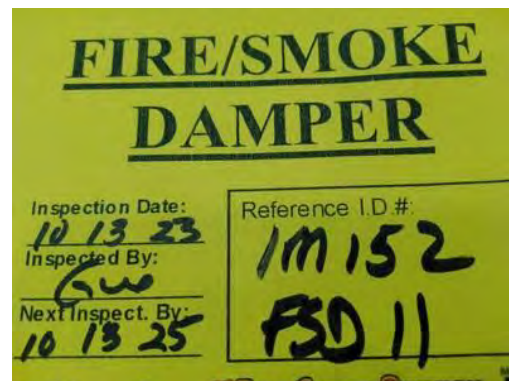 FIRE/SMOKE
DAMPER
Inspection Date:
10 13 23
Inspected By:
Next Inspect. By:
10 13 25
Reference I.D.#:
1M 152
FSD 11